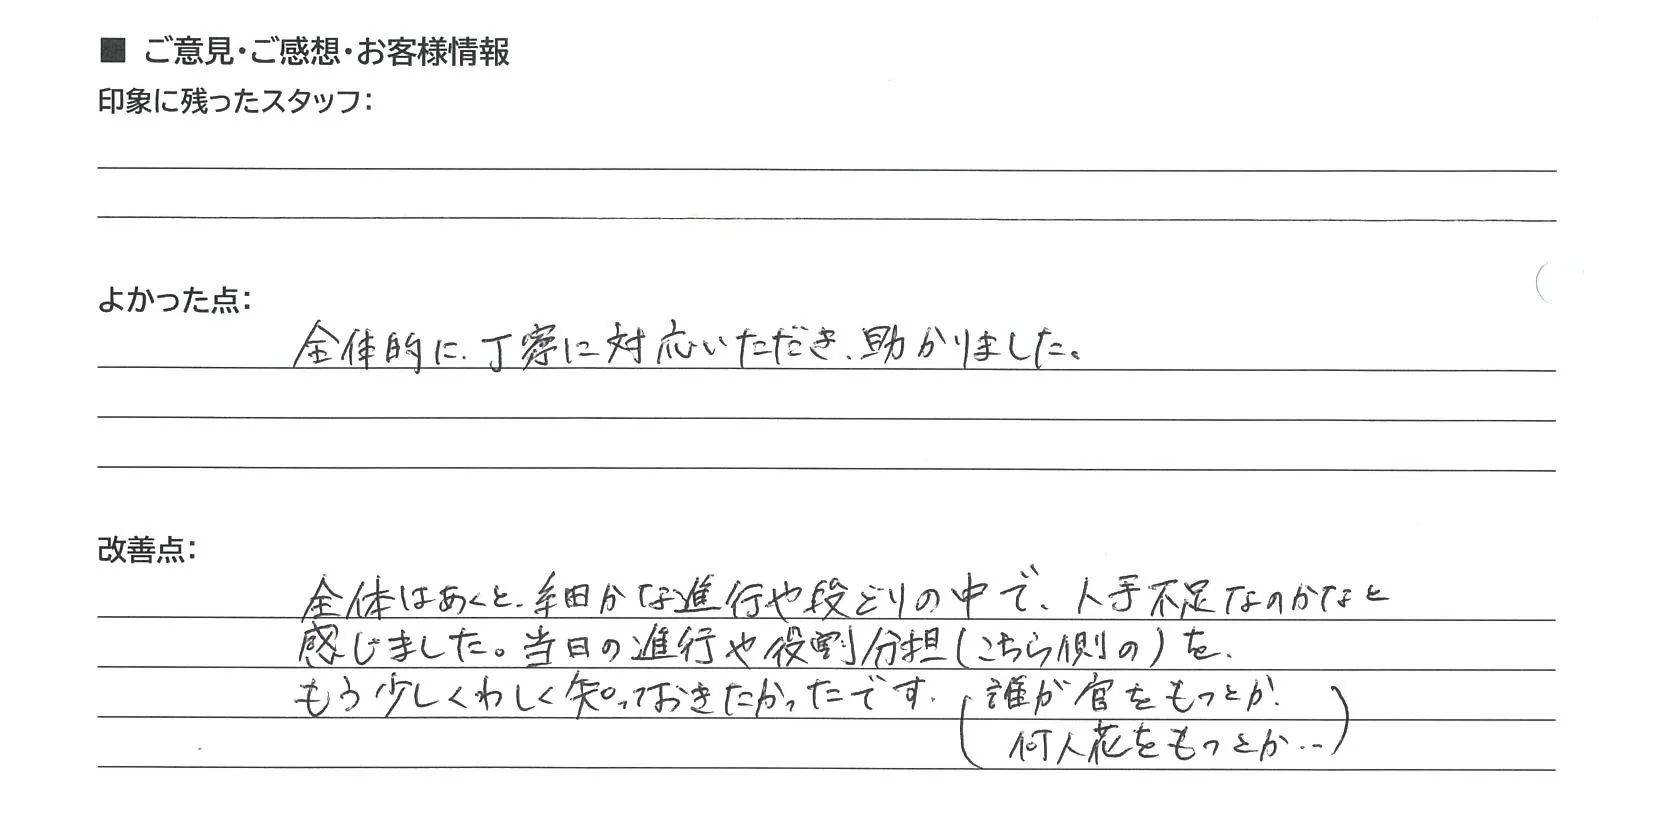 ■ ご意見・ご感想・お客様情報
印象に残ったスタッフ：
よかった点：
全体的に、丁寧に対応いただき、助かりました。
改善点：
全体はあくと、細かな進行や段どりの中で、人手不足なのかなと
感じました。当日の進行や役割分担(こちら側の)を、
もう少しくわしく知っておきたかったです。(誰が官をもつとか、
何人花をもつとか…)